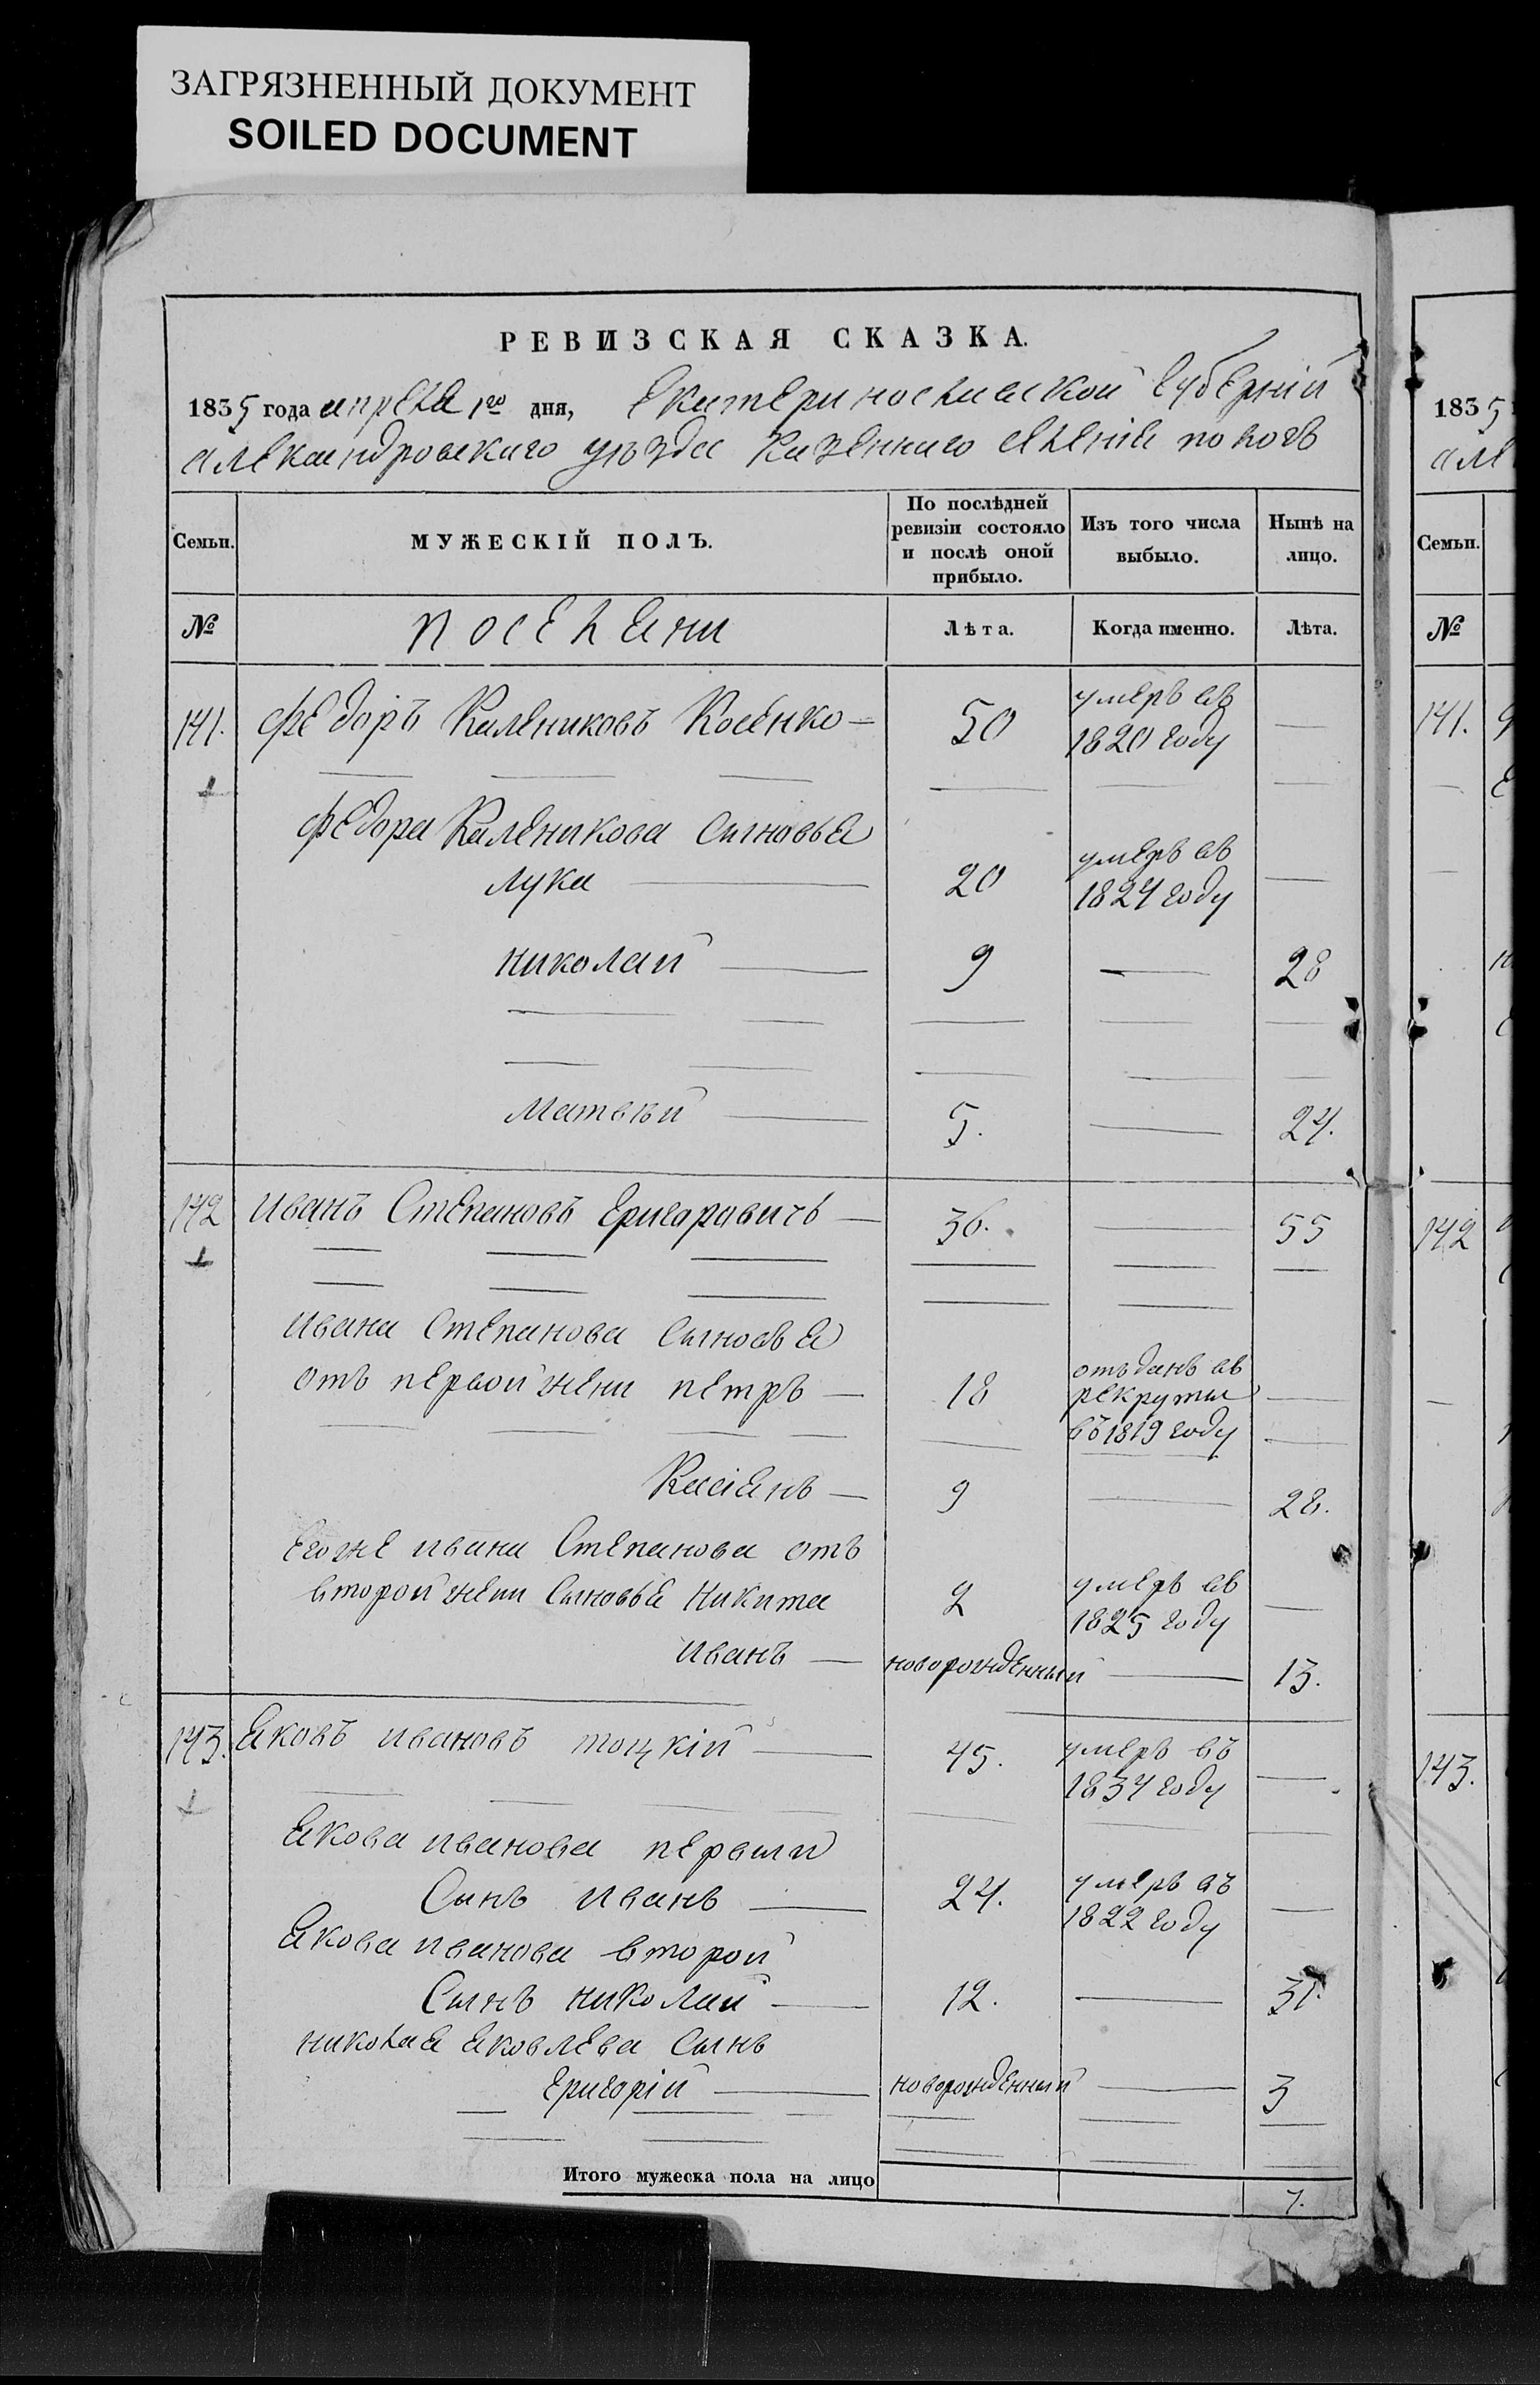 ЗАГРЯЗНЕННЫЙ ДОКУМЕНТ
SOILED DOCUMENT
РЕВИЗСКАЯ СКАЗКА.
1835 года апреля 1го дня, Екатеринославской Губернии
Александровскаго уъзда Казеннаго селения
Семьи.
МУЖЕСКІЙ ПОЛЪ.
По послѣдней ревизіи состояло и послѣ оной прибыло.
Изъ того числа выбыло.
Нынѣ на лицо.
№ поселяни Лѣта. Когда именно. Лѣта.
141. Федоръ Калениковъ Косенко — 50 умеръ въ 1820 году —
Федора Каленикова Сыновья
Лука — 20 умеръ въ 1824 году —
Николай — 9 — 28
Матвъй — 5. — 24.
142 Иванъ Степановъ Григоровичъ — 36. — 55
Ивана Степанова Сыновья
отъ первой жени Петръ — 18 отъданъ въ рекруты въ 1819 году —
Касіянъ — 9 — 28.
Егоже Ивана Степанова отъ
второй жени Сыновья Никита 2 умеръ въ 1825 году —
Иванъ — новорожденный — 13.
143. Яковъ Ивановъ Тоцкій — 45. умеръ въ 1834 году —
Якова Иванова первый
Сынъ Иванъ — 24. умеръ въ 1822 году —
Якова Иванова второй
Сынъ Николай — 12. — 31.
Николая Яковлева Сынъ
Григорій — новорожденный — 3
Итого мужеска пола на лицо 7.
1835
але
Семьи.
№
141.
142
143.